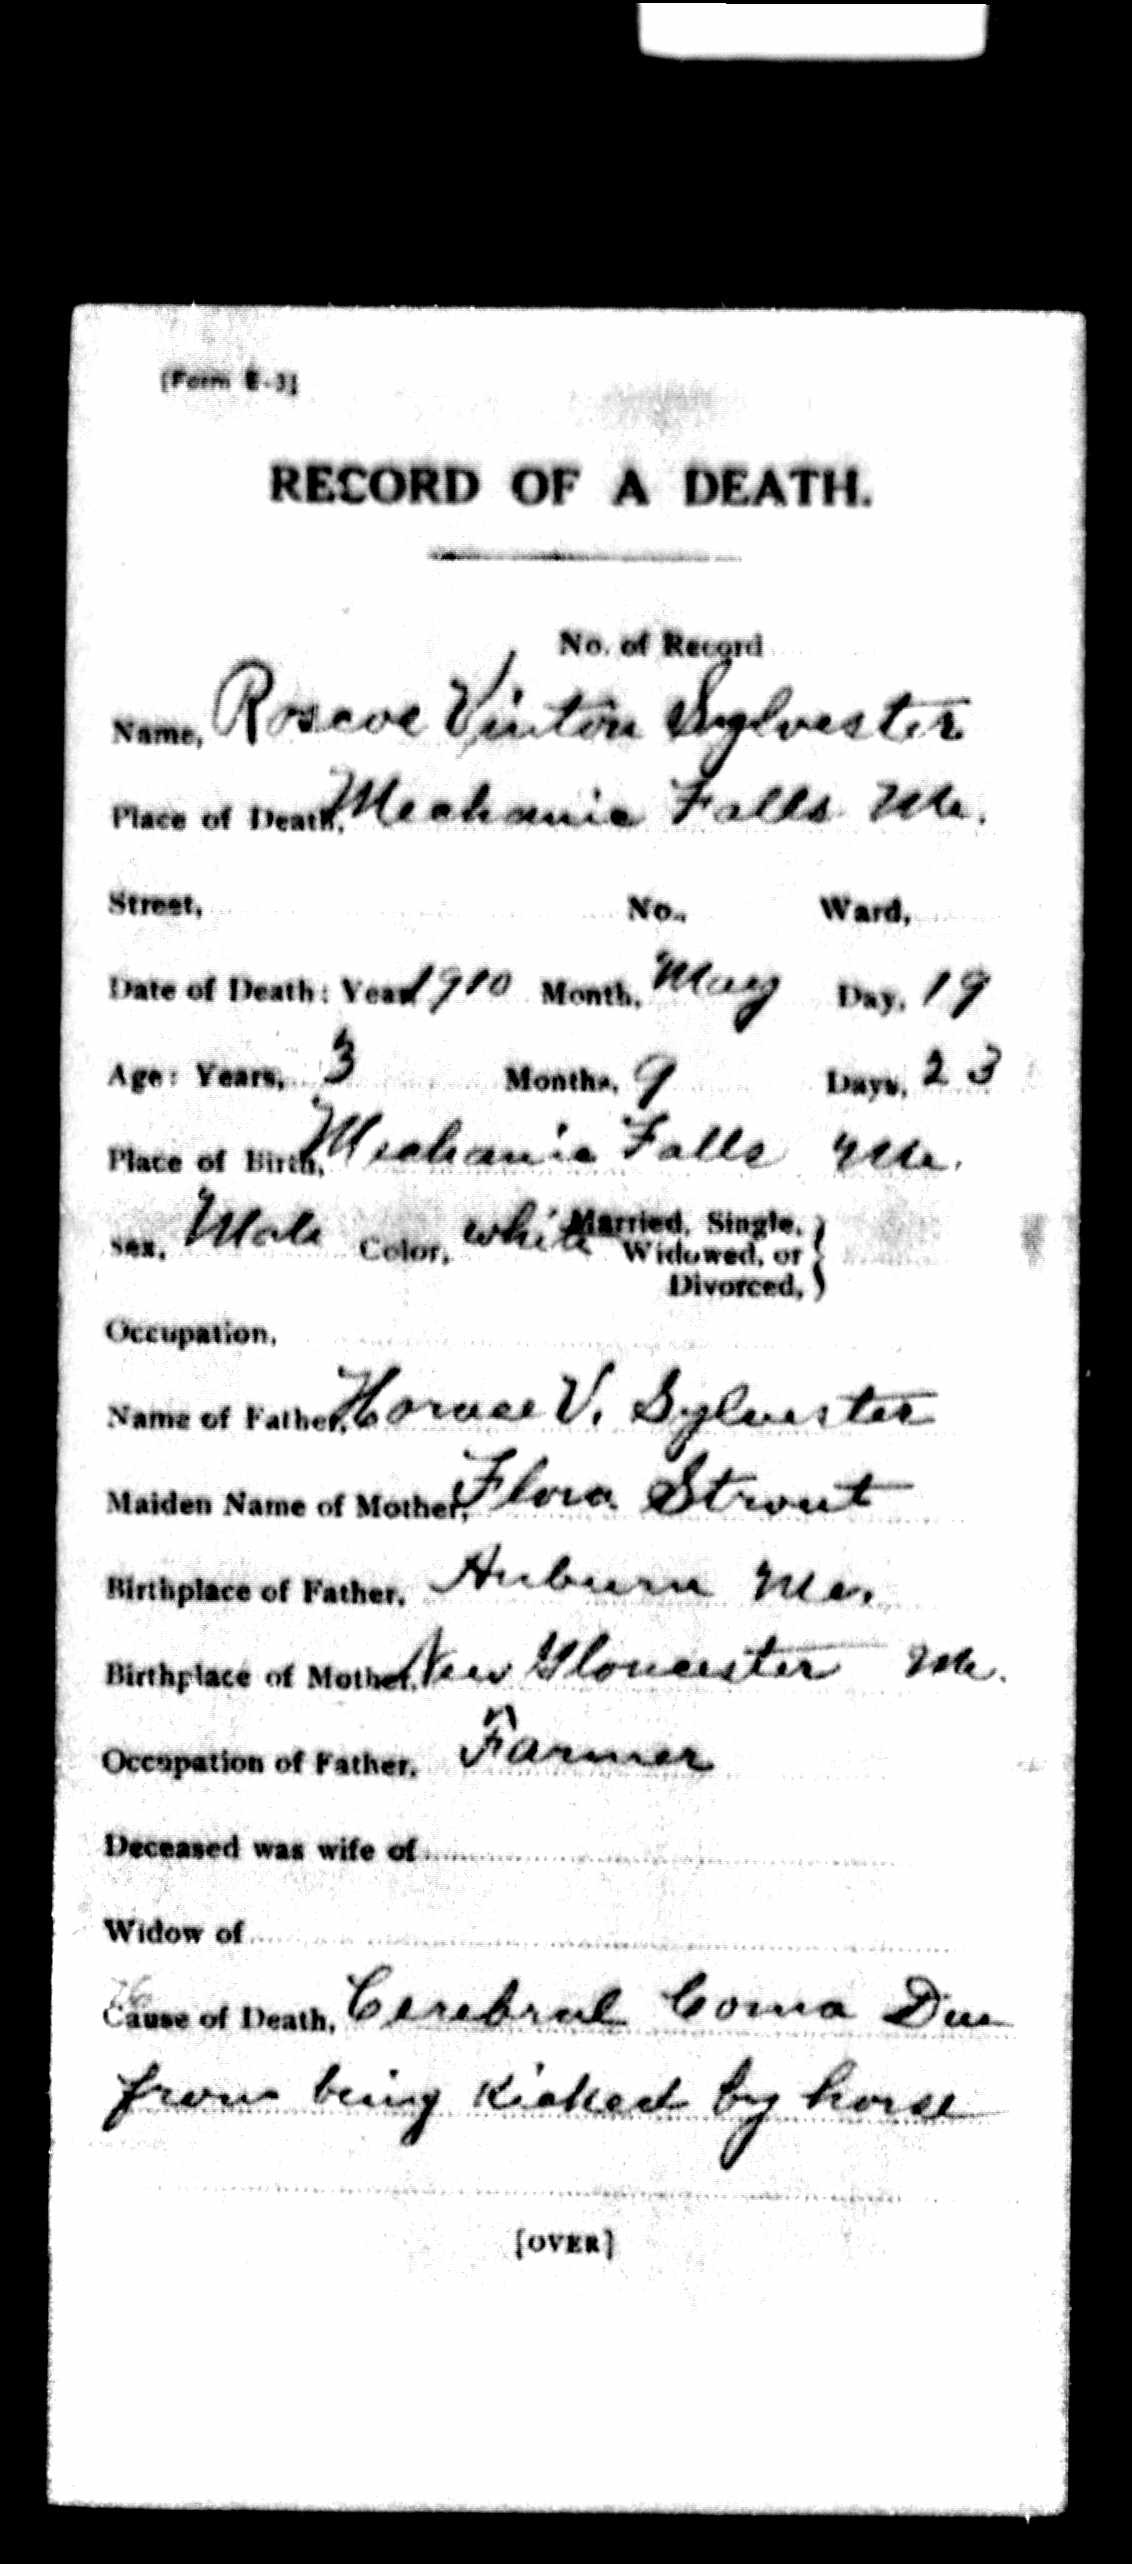 [Form E-3]
RECORD OF A DEATH.
No. of Record
Name, Roscoe Vinton Sylvester
Place of Death, Mechanic Falls Me.
Street, No., Ward,
Date of Death: Year, 1910 Month, May Day, 19
Age: Years, 3 Months, 9 Days, 23
Place of Birth, Mechanic Falls Me.
Sex, Male Color, white Married, Single, Widowed, or Divorced,
Occupation,
Name of Father, Horace V. Sylvester
Maiden Name of Mother, Flora Strout
Birthplace of Father, Auburn Me.
Birthplace of Mother, New Gloucester Me.
Occupation of Father, Farmer
Deceased was wife of
Widow of
Cause of Death, Cerebral Coma Due
from being kicked by horse
[OVER]